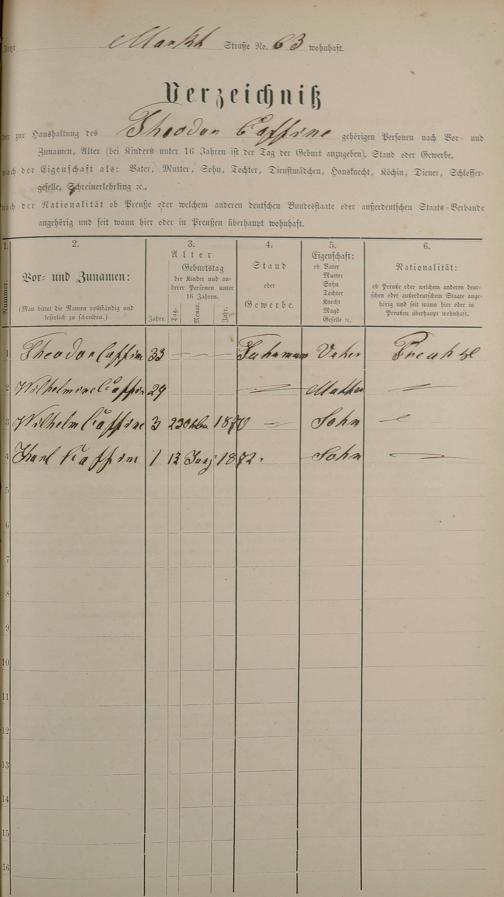 Jetzt Markt Straße No. 63 wohnhaft.
Verzeichniß
der zur Haushaltung des Theodor Caffine gehörigen Personen nach Vor- und
Zunamen, Alter (bei Kindern unter 16 Jahren ist der Tag der Geburt anzugeben), Stand oder Gewerbe,
nach der Eigenschaft als: Vater, Mutter, Sohn, Tochter, Dienstmädchen, Hausknecht, Köchin, Diener, Schlosser-
geselle, Schreinerlehrling ꝛc.,
nach der Nationalität ob Preuße oder welchem anderen deutschen Bundesstaate oder außerdeutschen Staats-Verbande
angehörig und seit wann hier oder in Preußen überhaupt wohnhaft.
1. 2. 3. 4. 5. 6.
Nummer.
Vor- und Zunamen:
(Man bittet die Namen vollständig und
leserlich zu schreiben.)
Alter
Geburtstag
der Kinder und an-
derer Personen unter
16 Jahren.
Jahre. Tag. Monat. Jahr.
Stand
oder
Gewerbe.
Eigenschaft:
ob Vater
Mutter
Sohn
Tochter
Knecht
Magd
Geselle ꝛc.
Nationalität:
ob Preuße oder welchem anderen deut-
schen oder außerdeutschen Staate ange-
hörig und seit wann hier oder in
Preußen überhaupt wohnhaft.
1 Theodor Caffine 33 — — Fuhrmann Vater
2 Wilhelmine Caffine 29 — Mutter —
3 Wilhelm Caffine 3 23 1870 — Sohn —
4 Karl Caffine 1 12 1872 Sohn —
5
6
7
8
9
10
11
12
13
14
15
16